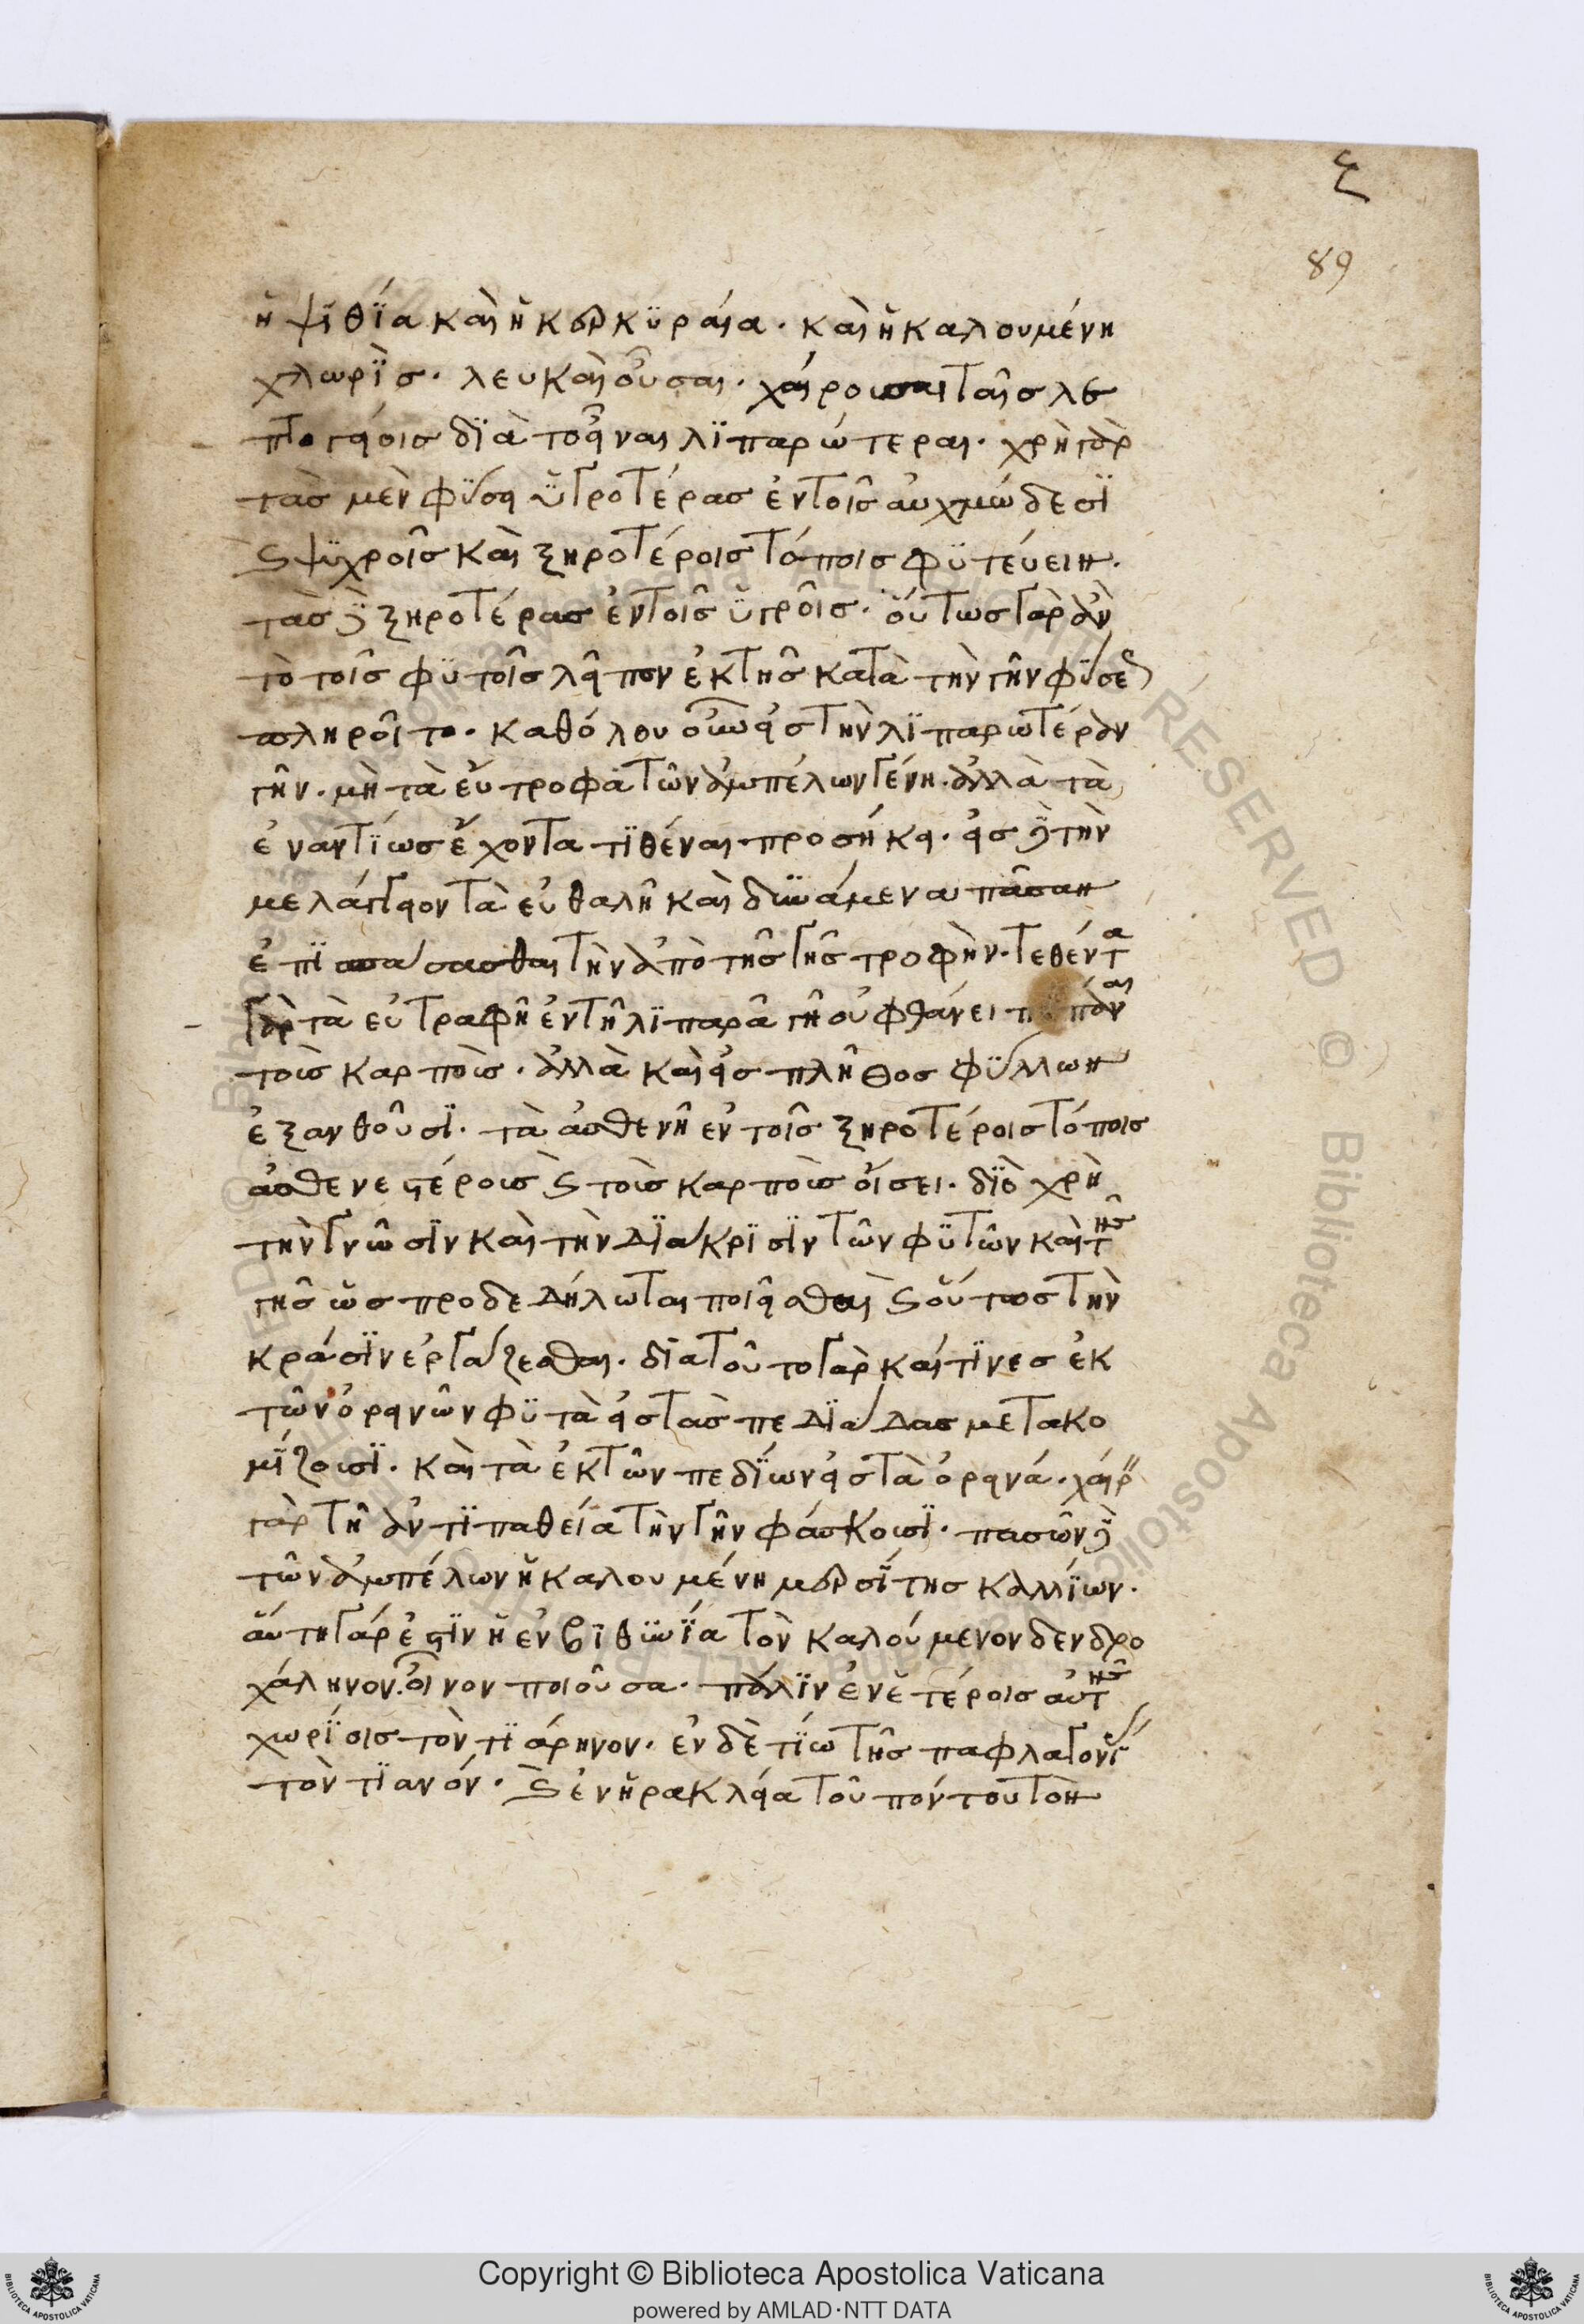 ξ
89
ἡ ψϊθΐα καὶ ἡ κερκϋραία. καὶ ἡ καλουμένη
χλωρῒς. λευκαὶ οὖσαι. χαίρουσι ταῖς λε
πτογείοις δϊὰ τὸ εἶναι λϊπαρώτεραι. χρὴ γὰρ
τὰς μὲν φΰσει ὑγροτέρας ἐν τοῖς αὐχμώδεσϊ
καὶ ψϋχροῖς καὶ ξηροτέροις τόποις φϋτεύειν.
τὰς δὲ ξηροτέρας ἐν τοῖς ὑγροῖς. οὕτως γὰρ ἂν
τὸ τοῖς φϋτοῖς λεῖπον ἐκ τῆς κατὰ τὴν γῆν φΰσεως
πληροῖτο. καθόλου οὖν εἰς τὴν λϊπαρωτέραν
γῆν. μὴ τὰ εὔτροφα τῶν ἀμπέλων γένη. ἀλλὰ τὰ
ἐναντΐως ἔχοντα τϊθέναι προσήκει. εἰς δὲ τὴν
μελάγγειον τὰ εὐθαλῆ καὶ δϋνάμενα πᾶσαν
ἐπϊσπάσασθαι τὴν ἀπὸ τῆς γῆς τροφὴν. τεθέντα
γὰρ τὰ εὐτραφῆ ἐν τῆ λϊπαρᾶ γῆ οὐ φθάνει
τοῖς καρποῖς. ἀλλὰ καὶ εἰς πλῆθος φΰλλων
ἐξανθοῦσϊ. τὰ ἀσθενῆ ἐν τοῖς ξηροτέροις τόποις
ἀσθενεστέροις καὶ τοῖς καρποῖς οἴσει. δϊὸ χρὴ
τὴν γνῶσϊν καὶ τὴν δϊάκρϊσϊν τῶν φϋτῶν καὶ τῆς
γῆς ὡς προδεδήλωται ποιεῖσθαι καὶ οὕτως τὴν
κρᾶσϊν ἐργάζεσθαι. διατοῦτο γὰρ καί τϊνες ἐκ
τῶν ὀρεινῶν φϋτὰ εἰς τὰς πεδϊάδας μετακο
μΐζουσϊ. καὶ τὰ ἐκ τῶν πεδΐων εἰς τὰ ὀρεινά. χαίρειν
γὰρ τῆ ἀντϊπαθεία τὴν γῆν φάσκουσϊ. πασῶν δὲ
τῶν ἀμπέλων ἡ καλουμένη μερσΐτης καλλΐων.
αὕτη γάρ ἐστϊν ἡ ἐν βϊθϋνΐα τὸν καλούμενον δενδρο
γάληνον οἶνον ποιοῦσα. πάλϊν ἐν ἑτέροις αὐτῆς
χωρΐοις τὸν τϊάρηνον. ἐν δὲ τΐω τῆς παφλαγονΐας
τὸν τϊανόν. καὶ ἐν ἡρακλεία τοῦ πόντου τὸν
Copyright © Biblioteca Apostolica Vaticana
powered by AMLAD·NTT DATA